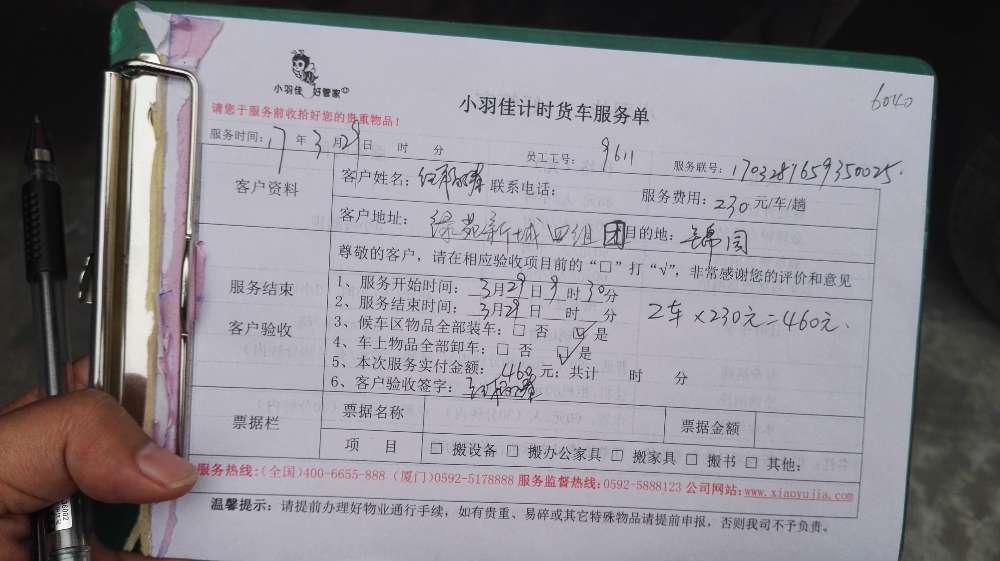 小羽佳 好管家
小羽佳计时货车服务单
6040
请您于服务前收拾好您的贵重物品！
服务时间：17年3月29日 时 分 员工工号：9611 服务联号：1703281659350025
客户资料
客户姓名： 联系电话： 服务费用：230元/车/趟
客户地址：绿苑新城四组团 目的地：锦园
尊敬的客户，请在相应验收项目前的“□”打“√”，非常感谢您的评价和意见
服务结束
客户验收
1、服务开始时间：3月29日9时30分
2、服务结束时间：3月29日 时 分
2车×230元=460元.
3、候车区物品全部装车：□ 否 ☑ 是
4、车上物品全部卸车：□ 否 ☑ 是
5、本次服务实付金额：460元；共计 时 分
6、客户验收签字：
票据栏
票据名称 票据金额
项 目 □ 搬设备 □ 搬办公家具 □ 搬家具 □ 搬书 □ 其他：
服务热线：(全国)400-6655-888 (厦门)0592-5178888 服务监督热线：0592-5888123 公司网站：www.xiaoyujia.com
温馨提示：请提前办理好物业通行手续，如有贵重、易碎或其它特殊物品请提前申报，否则我司不予负责。